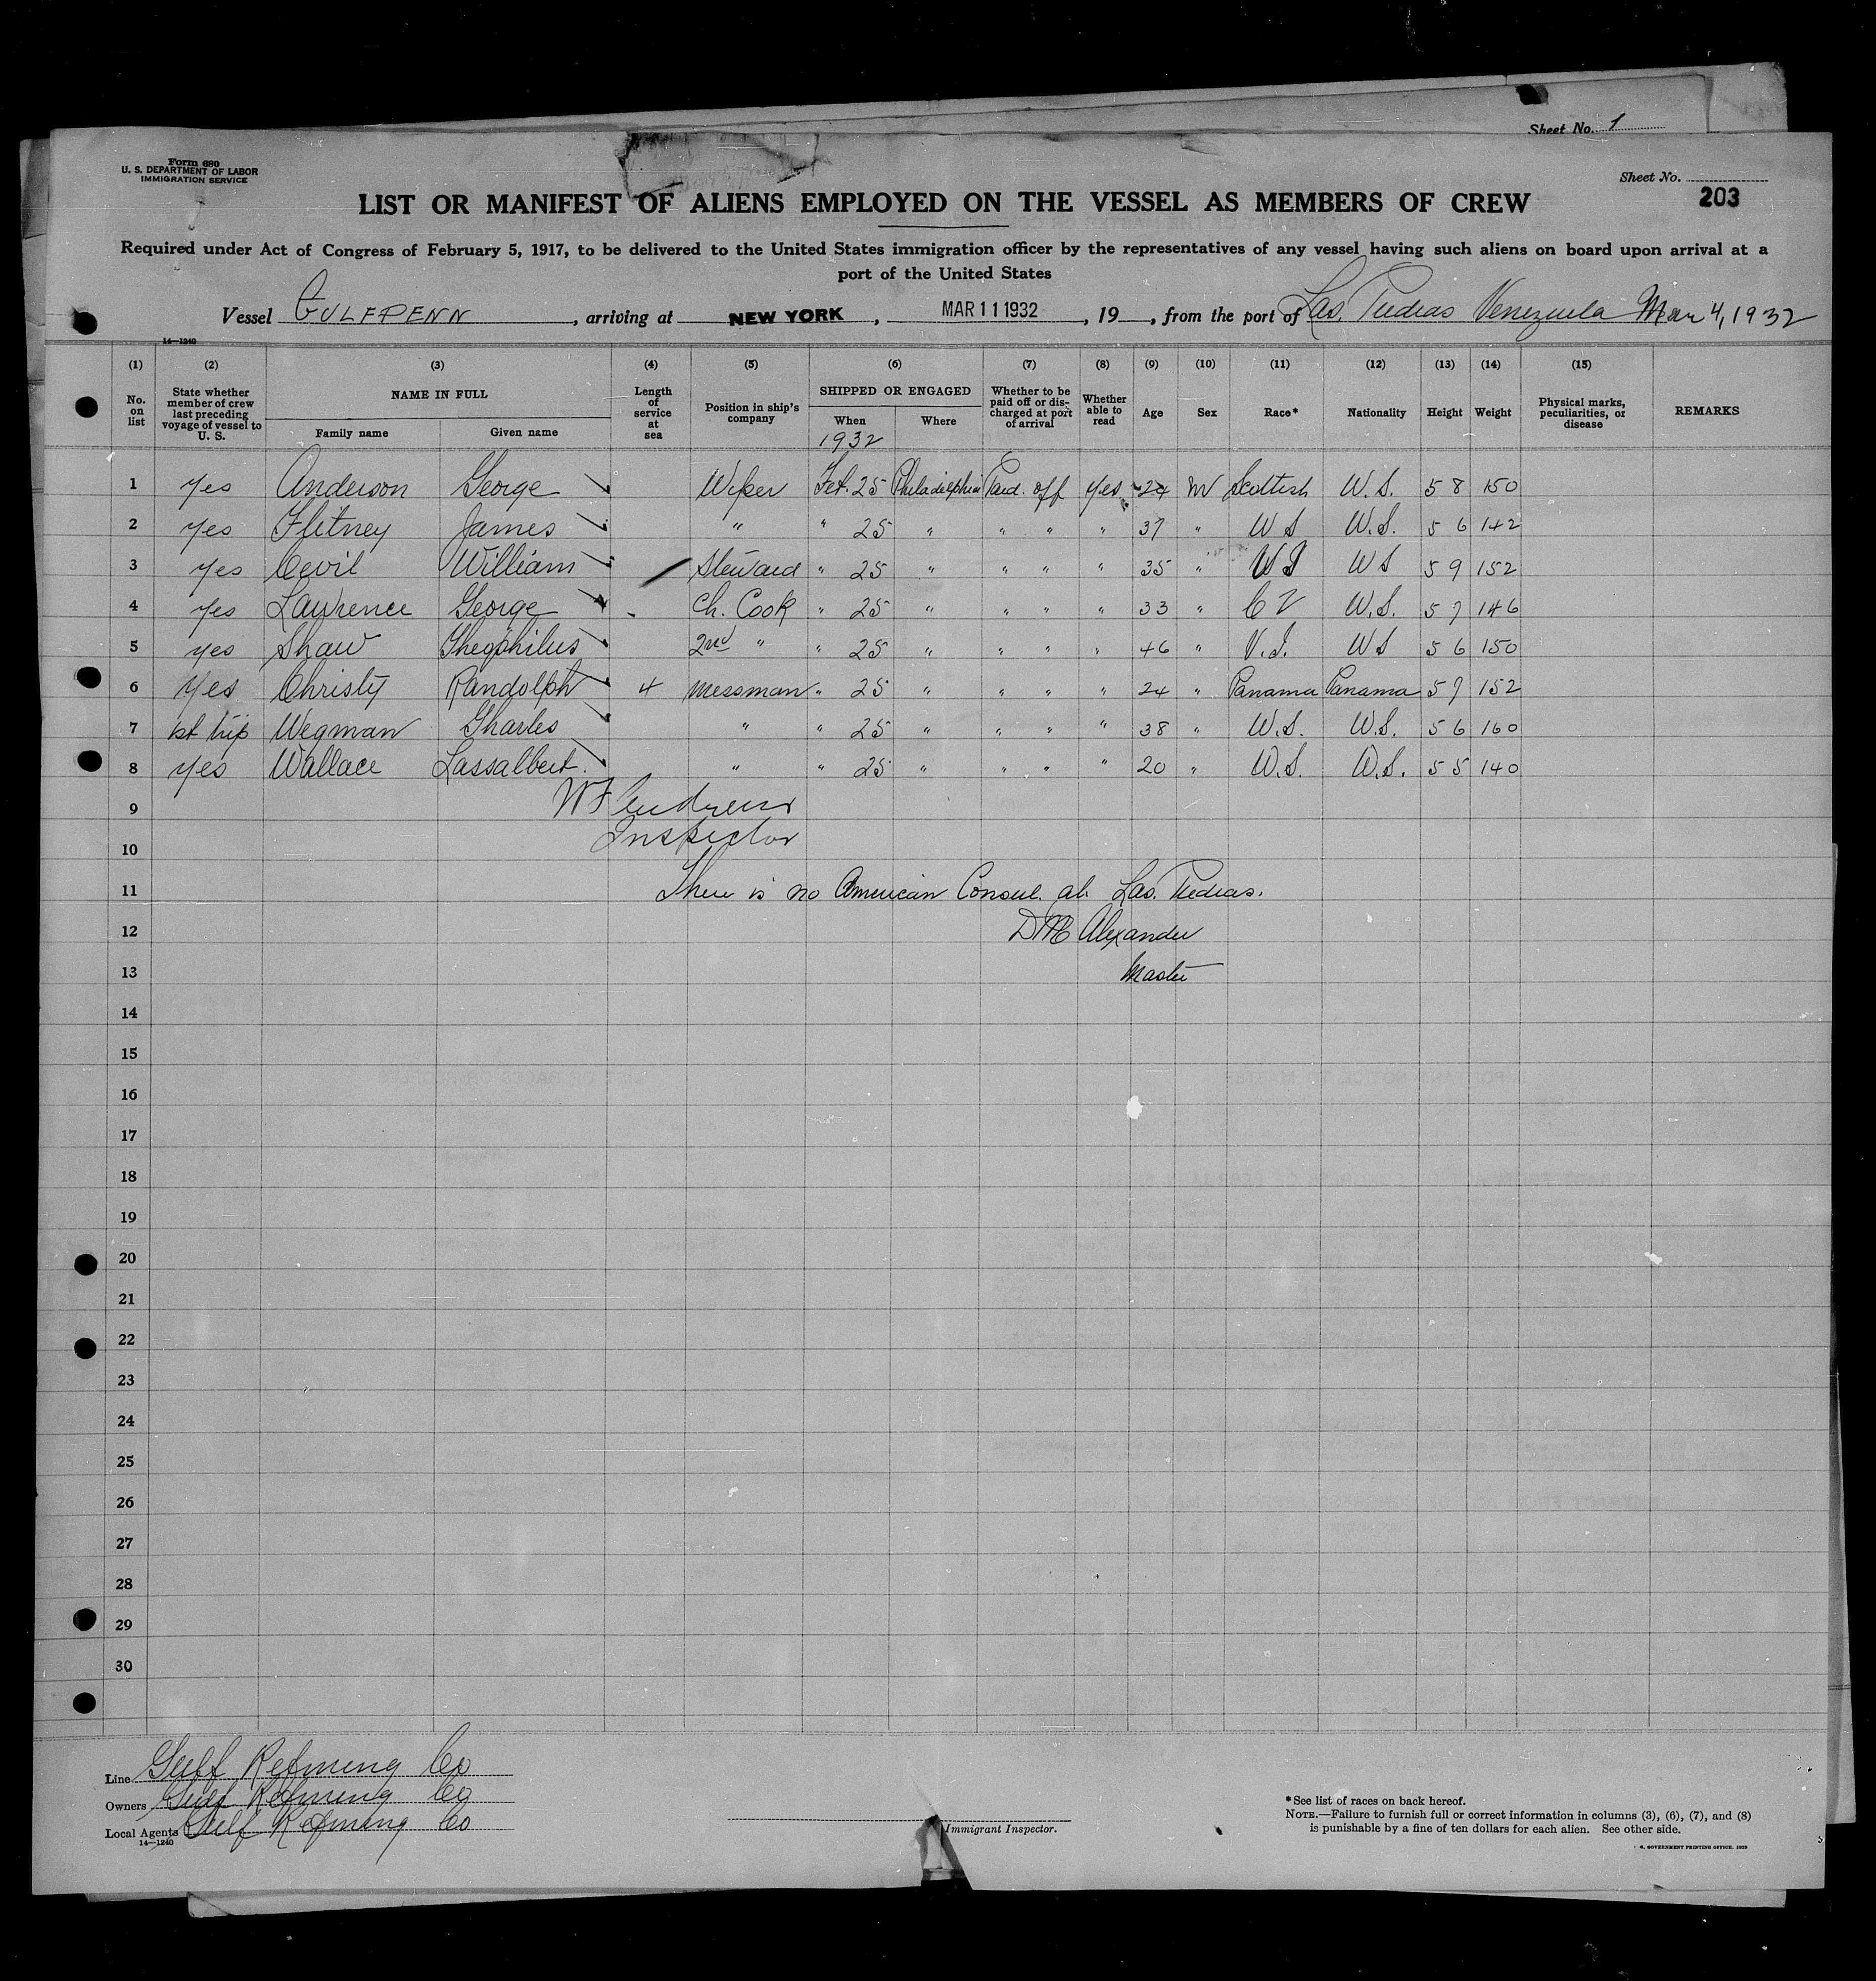 Sheet No. 1
Form 680
U. S. DEPARTMENT OF LABOR
IMMIGRATION SERVICE
Sheet No.
203
LIST OR MANIFEST OF ALIENS EMPLOYED ON THE VESSEL AS MEMBERS OF CREW
Required under Act of Congress of February 5, 1917, to be delivered to the United States immigration officer by the representatives of any vessel having such aliens on board upon arrival at a
port of the United States
Vessel GULFPENN, arriving at NEW YORK, MAR 11 1932, 19, from the port of Las. Piedras Venezuela Mar 4, 1932
14—1240
(1) (2) (3) (4) (5) (6) (7) (8) (9) (10) (11) (12) (13) (14) (15)
No. on list State whether member of crew last preceding voyage of vessel to U. S. NAME IN FULL Family name Given name Length of service at sea Position in ship's company SHIPPED OR ENGAGED When Where Whether to be paid off or discharged at port of arrival Whether able to read Age Sex Race* Nationality Height Weight Physical marks, peculiarities, or disease REMARKS
1932
1 Yes Anderson George Wiper Feb. 25 Philadelphia Paid. off Yes 24 M Scottish W.S. 5 8 150
2 Yes Flitney James " " 25 " " " " 37 " W S W.S. 5 6 142
3 Yes Cevil William Steward " 25 " " " " 35 " W S 5 9 152
4 Yes Lawrence George Ch. Cook " 25 " " " " 33 " W.S. 5 7 146
5 Yes Shaw Theophilus 2nd " " 25 " " " " 46 " V.I. W S 5 6 150
6 Yes Christy Randolph 4 messman " 25 " " " " 24 " Panama Panama 5 7 152
7 1st trip Wegman Charles " " 25 " " " " 38 " W.S. W.S. 5 6 160
8 Yes Wallace Lassalbert. " " 25 " " " " 20 " W.S. W.S. 5 5 140
9 W F Andrews
10 Inspector
11 There is no American Consul. at. Las. Piedras.
12 D M Alexander
13 Master
14
15
16
17
18
19
20
21
22
23
24
25
26
27
28
29
30
Line Gulf Refining Co
Owners Gulf Refining Co
Local Agents Gulf Refining Co
14—1240
Immigrant Inspector.
*See list of races on back hereof.
NOTE.—Failure to furnish full or correct information in columns (3), (6), (7), and (8)
is punishable by a fine of ten dollars for each alien. See other side.
GOVERNMENT PRINTING OFFICE. 1929